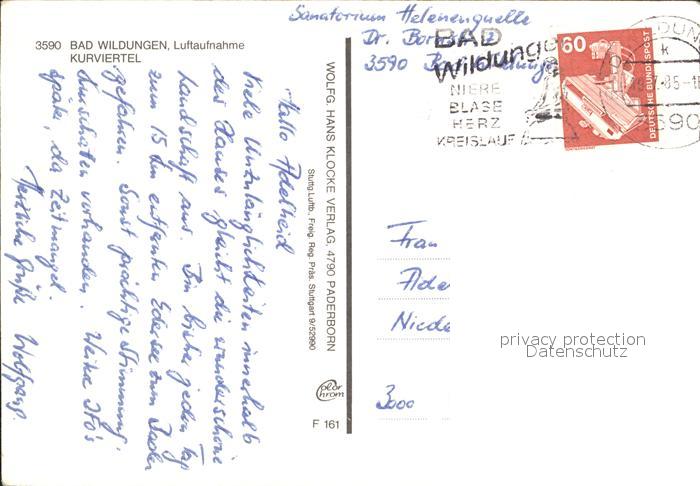 3590 BAD WILDUNGEN, Luftaufnahme
KURVIERTEL
Hallo Adelheid
Viele Unzulänglichkeiten innerhalb
des Hauses gleicht die wunderschöne
Landschaft aus. Bin bisher jeden Tag
zum 15 km entfernten Edersee zum Baden
gefahren. Sonst prächtige Stimmung.
Aussichten vorhanden. Weitere Info's
später, da Zeitmangel.
Herzliche Grüße Wolfgang.
WOLFG. HANS KLOCKE VERLAG, 4790 PADERBORN
Stuttg. Luftb. Freig. Reg. Präs. Stuttgart 9/52990
color
chrom
F 161
Sanatorium Helenenquelle
Dr.
3590 Bad Wildungen
BAD
Wildungen
NIERE
BLASE
HERZ
KREISLAUF
60
DEUTSCHE BUNDESPOST
k
85-1
590
Frau
Ade
Niede
3000
privacy protection
Datenschutz